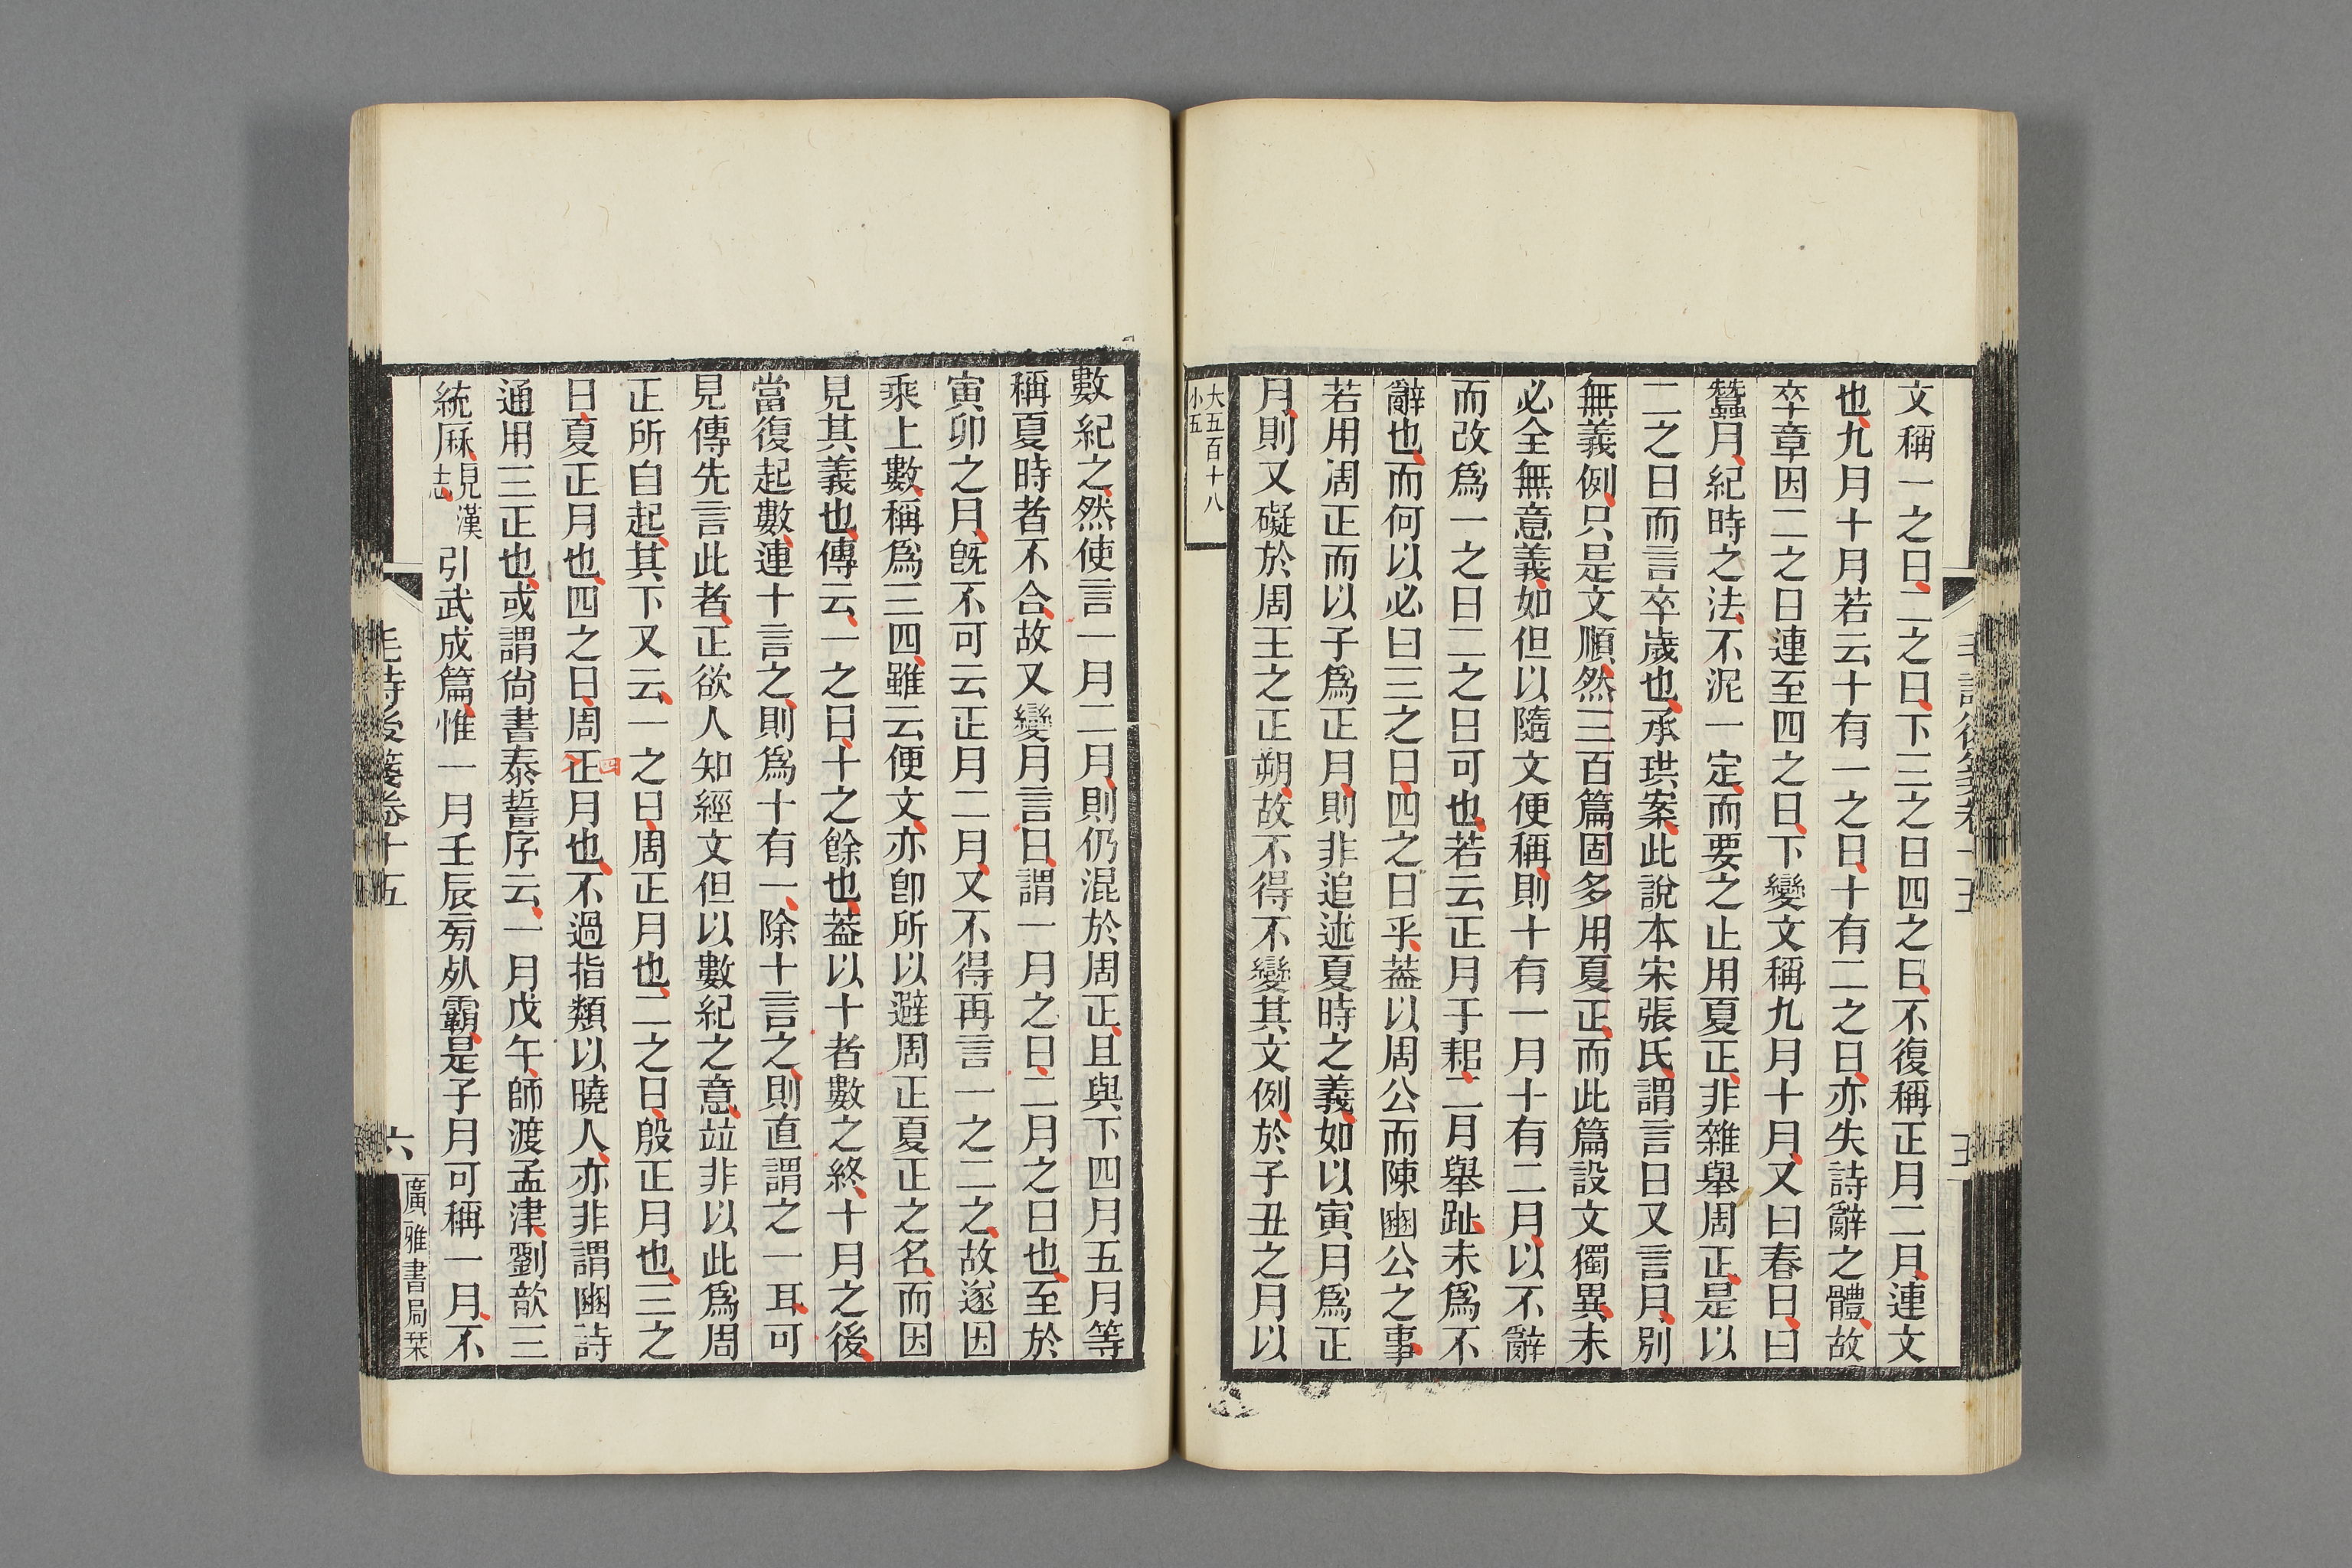 文稱一之日二之日下三之日四之日不復稱正月二月連文
也九月十月若云十有一之日十有二之日亦失詩辭之體故
卒章因二之日連至四之日下變文稱九月十月又曰春日曰
蠶月紀時之法不泥一定而要之止用夏正非雜舉周正是以
二之日而言卒歲也承珙案此說本宋張氏謂言日又言月別
無義例只是文順然三百篇固多用夏正而此篇設文獨異未
必全無意義如但以隨文便稱則十有一月十有二月以不辭
而改爲一之日二之日可也若云正月于耜二月舉趾未爲不
辭也而何以必曰三之日四之日乎葢以周公而陳豳公之事
若用周正而以子爲正月則非追述夏時之義如以寅月爲正
月則又礙於周王之正朔故不得不變其文例於子丑之月以
大五百十八
小五
毛詩後箋卷十五
五
數紀之然使言一月二月則仍混於周正且與下四月五月等
稱夏時者不合故又變月言日謂一月之日二月之日也至於
寅卯之月旣不可云正月二月又不得再言一之二之故遂因
乘上數稱爲三四雖云便文亦卽所以避周正夏正之名而因
見其義也傳云一之日十之餘也葢以十者數之終十月之後
當復起數連十言之則爲十有一除十言之則直謂之一耳可
見傳先言此者正欲人知經文但以數紀之意竝非以此爲周
正所自起其下又云一之日周正月也二之日殷正月也三之
日夏正月也四之日周正月也不過指類以曉人亦非謂豳詩
四
通用三正也或謂尙書泰誓序云一月戊午師渡孟津劉歆三
統厤見漢志引武成篇惟一月壬辰㫄𣦸霸是子月可稱一月不
毛詩後箋卷十五
六
廣雅書局栞